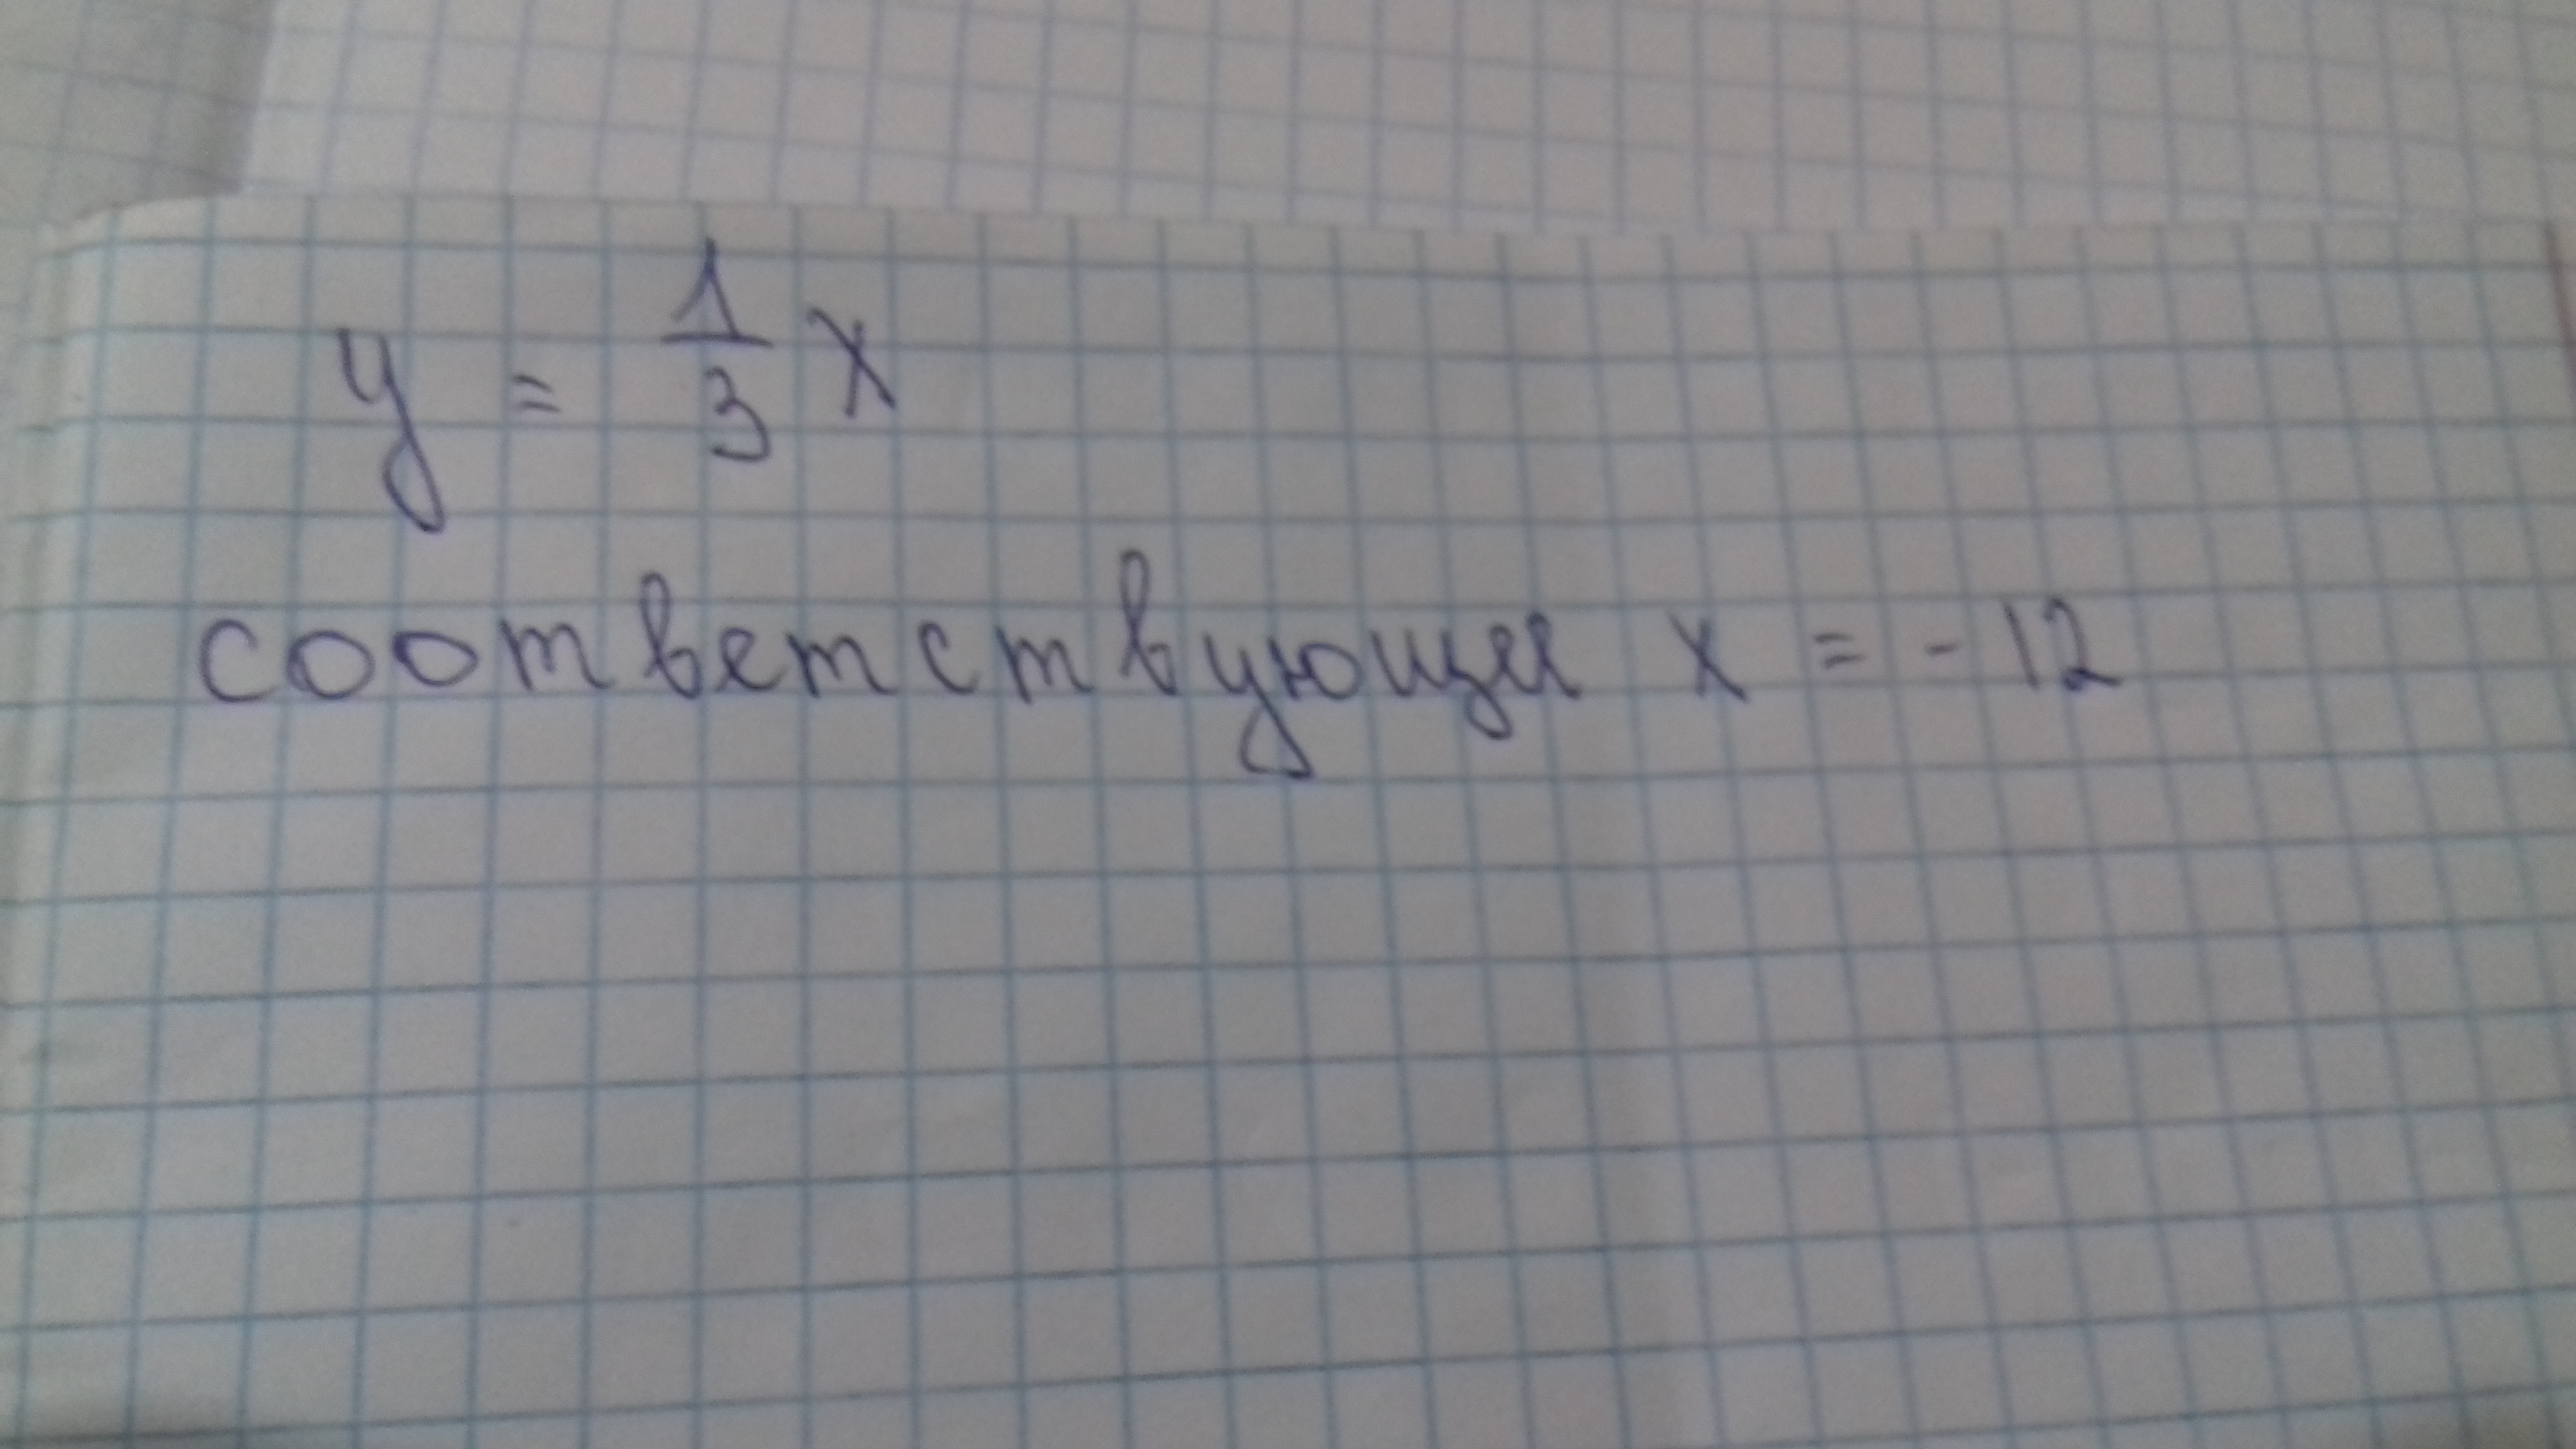 y = 1/3 x
соответствующее x = -12